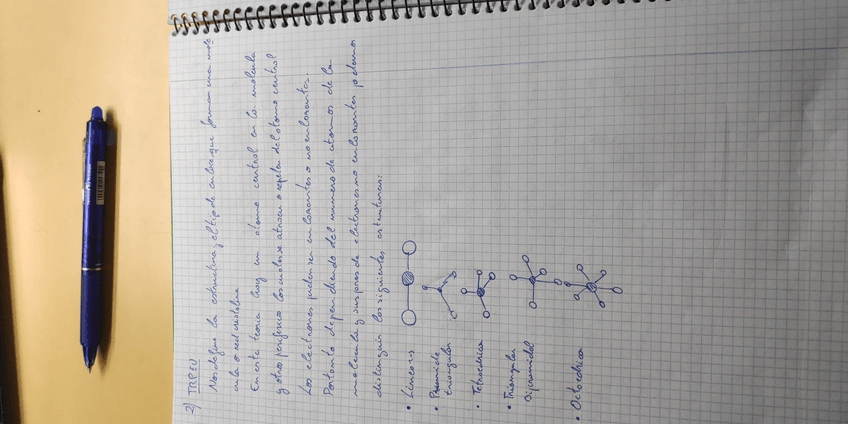 2) TRPEV
Nos define la estructura y el tipo de enlace que forman una molé
cula o red cristalina
En esta teoría hay un átomo central en la molécula
y otros periféricos los cuales se atraen o repelen del átomo central
Los electrones pueden ser enlazantes o no enlazantes.
Por tanto dependiendo del numero de átomos de la
molécula y sus pares de electrones no enlazantes podemos
distinguir las siguientes estructuras:
• Lineares
• Piramide
triangular
• Tetraedrica
• Triangular
Bipiramidal
• Octaedrica